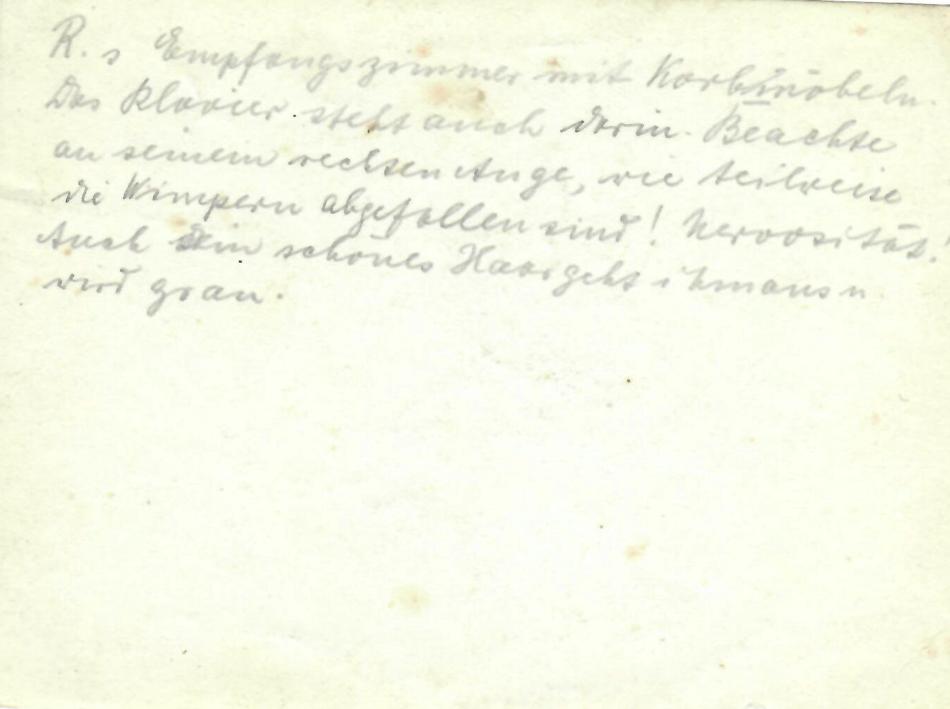 R. s Empfangszimmer mit Korbmöbeln.
Das Klavier steht auch darin. Beachte
an seinem rechten Auge, wie teilweise
die Wimpern abgefallen sind! Nervosität.
Auch sein schönes Haar geht ihm aus u.
wird grau.